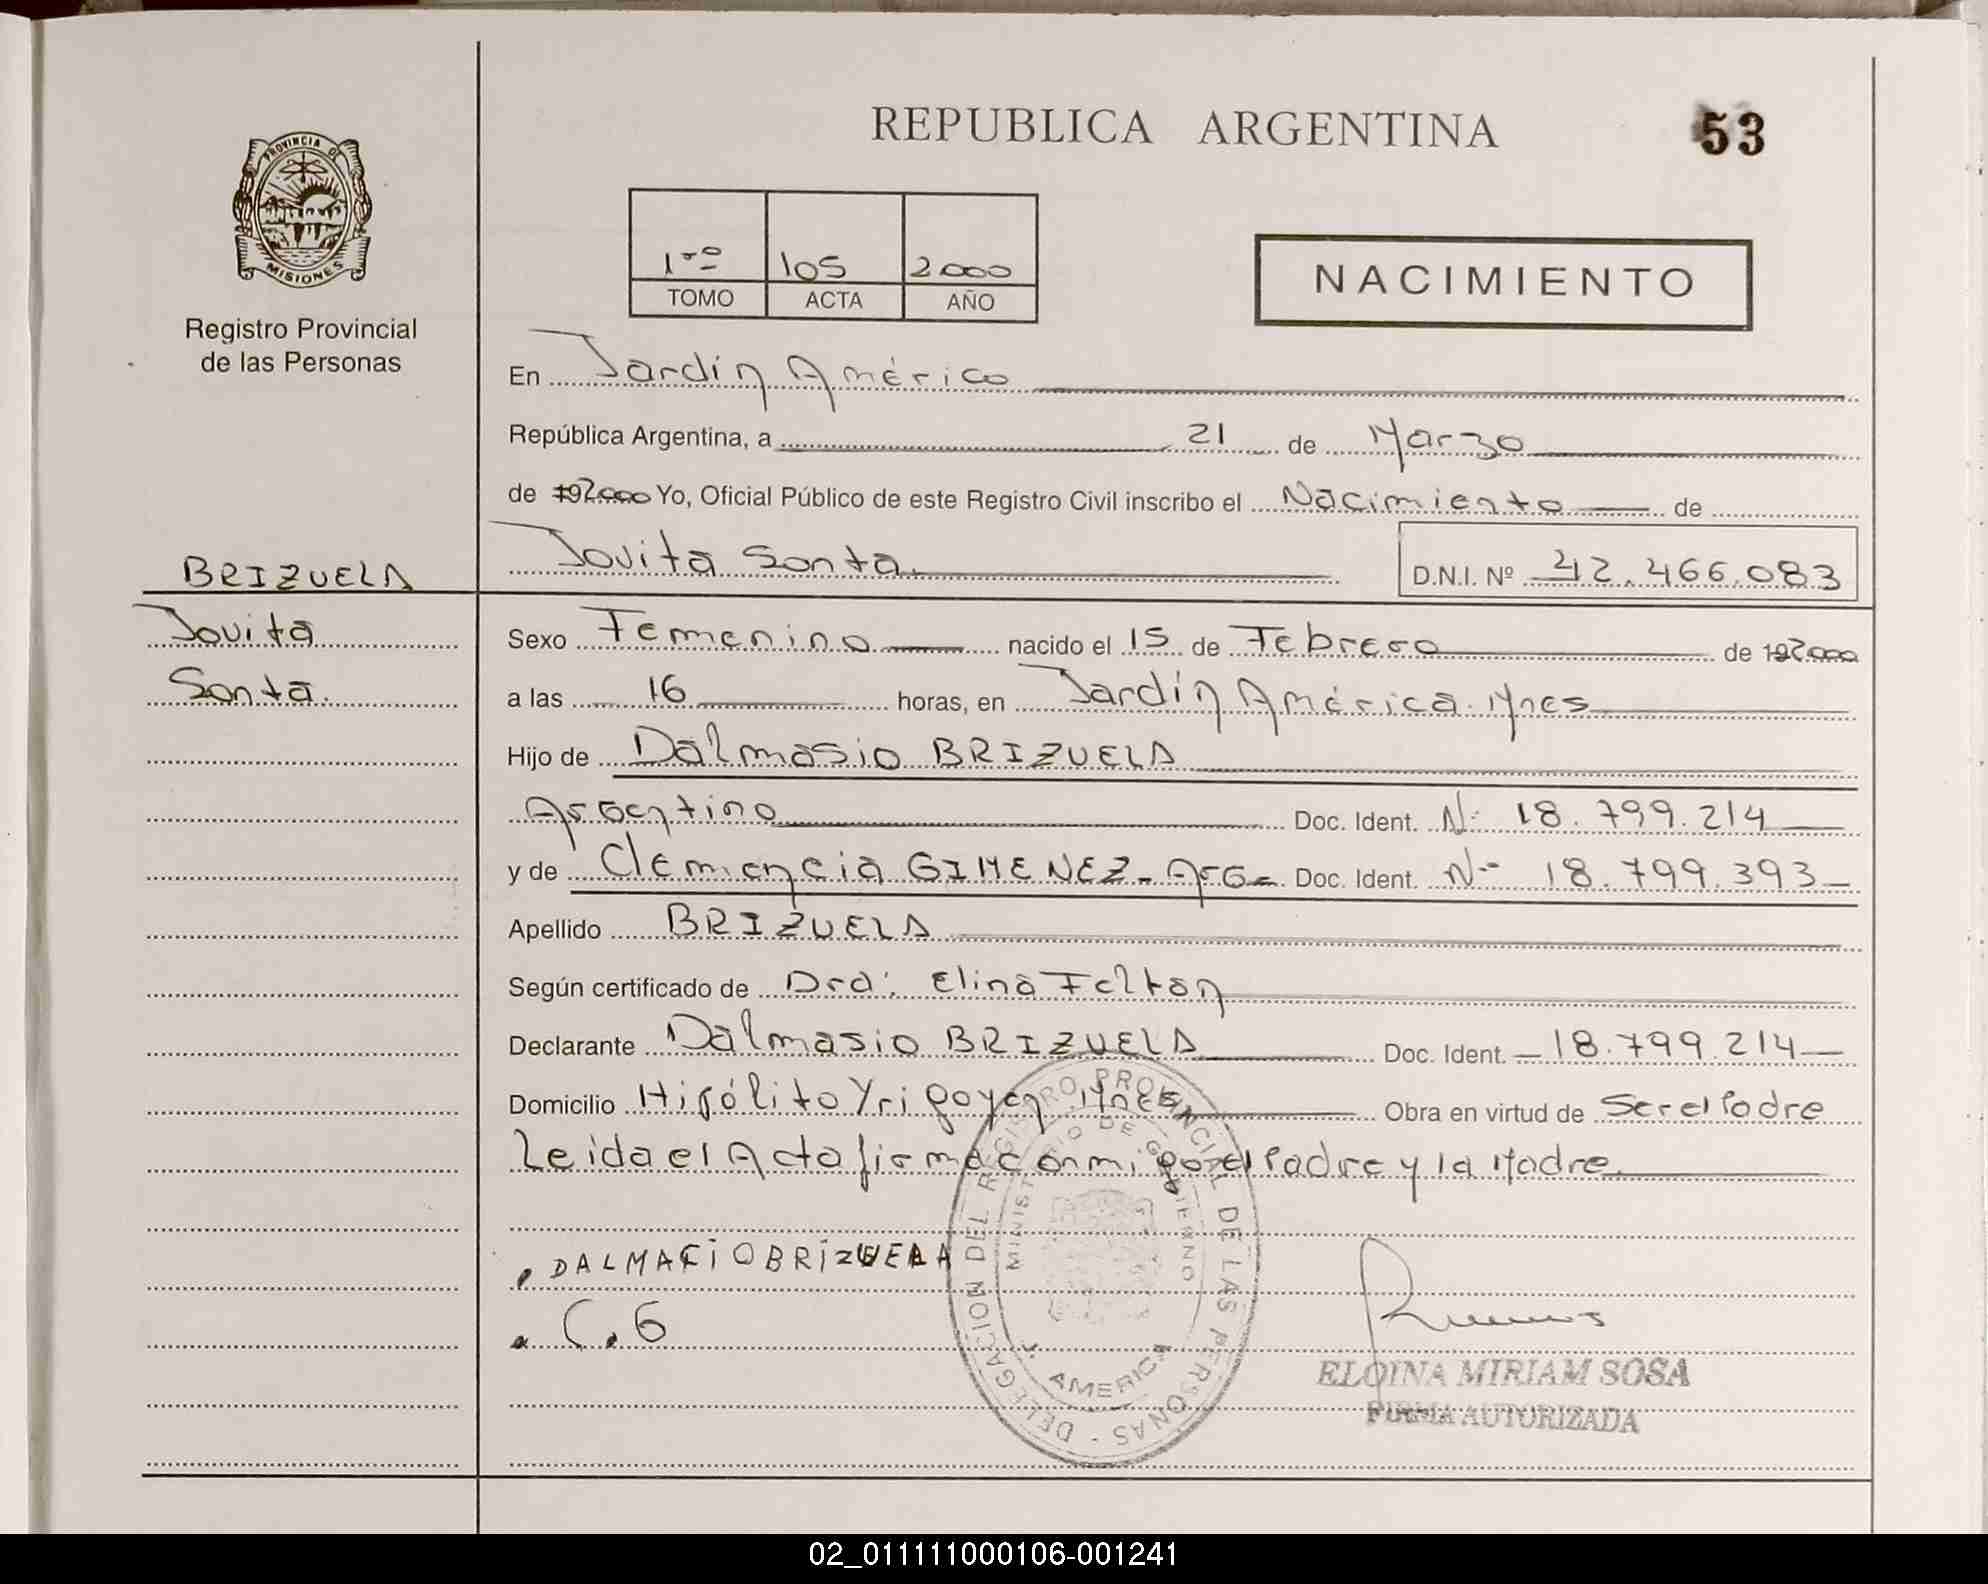 REPUBLICA ARGENTINA
53
PROVINCIA DE
MISIONES
Registro Provincial
de las Personas
1ro 105 2000
TOMO ACTA AÑO
NACIMIENTO
En Jardín América
República Argentina, a 21 de Marzo
de 192000 Yo, Oficial Público de este Registro Civil inscribo el Nacimiento de
Jovita Santa.
D.N.I. Nº 42.466.083
BRIZUELA
Jovita
Santa.
Sexo Femenino nacido el 15 de Febrero de 192000
a las 16 horas, en Jardín América. Mnes
Hijo de Dalmasio BRIZUELA
Argentino Doc. Ident. Nº 18.799.214
y de Clemencia GIMENEZ - Arg - Doc. Ident. Nº 18.799.393
Apellido BRIZUELA
Según certificado de Dra: Elina Felton
Declarante Dalmasio BRIZUELA Doc. Ident. 18.799.214
Domicilio Hipólito Yrigoyen Mnes Obra en virtud de Ser el Padre
Leida el Acta firma conmigo el Padre y la Madre.
DALMACIO BRIZUELA
C.G
DELEGACION DEL REGISTRO PROVINCIAL DE LAS PERSONAS -
MINISTERIO DE GOBIERNO
J. AMERICA
ELOINA MIRIAM SOSA
FIRMA AUTORIZADA
02_011111000106-001241